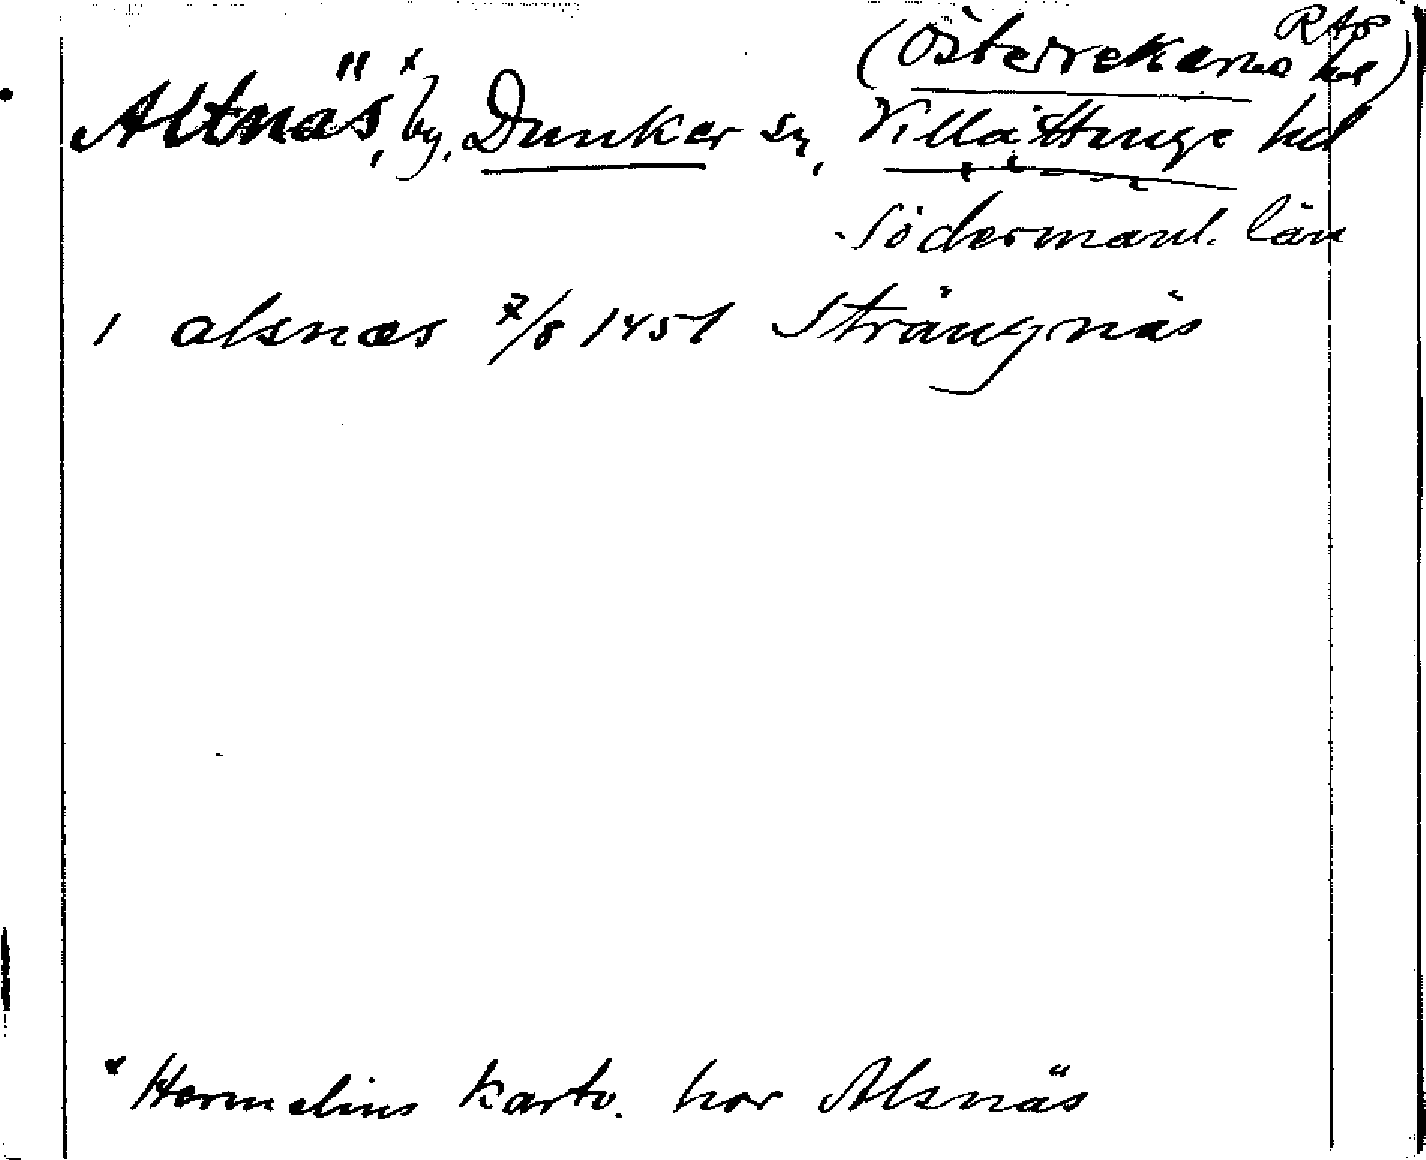 (Österrekarne hd)
Altnäs,ˣ by, Dunker sn, Villåttinge hd
Södermanl. län
1 alsnæs 7/8 1451 Strängnäs
ˣ Hermelins karto. har Alsnäs